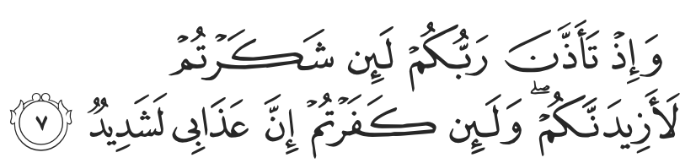 وَإِذۡ تَأَذَّنَ رَبُّكُمۡ لَئِن شَكَرۡتُمۡ
لَأَزِيدَنَّكُمۡۖ وَلَئِن كَفَرۡتُمۡ إِنَّ عَذَابِي لَشَدِيدٞ ٧